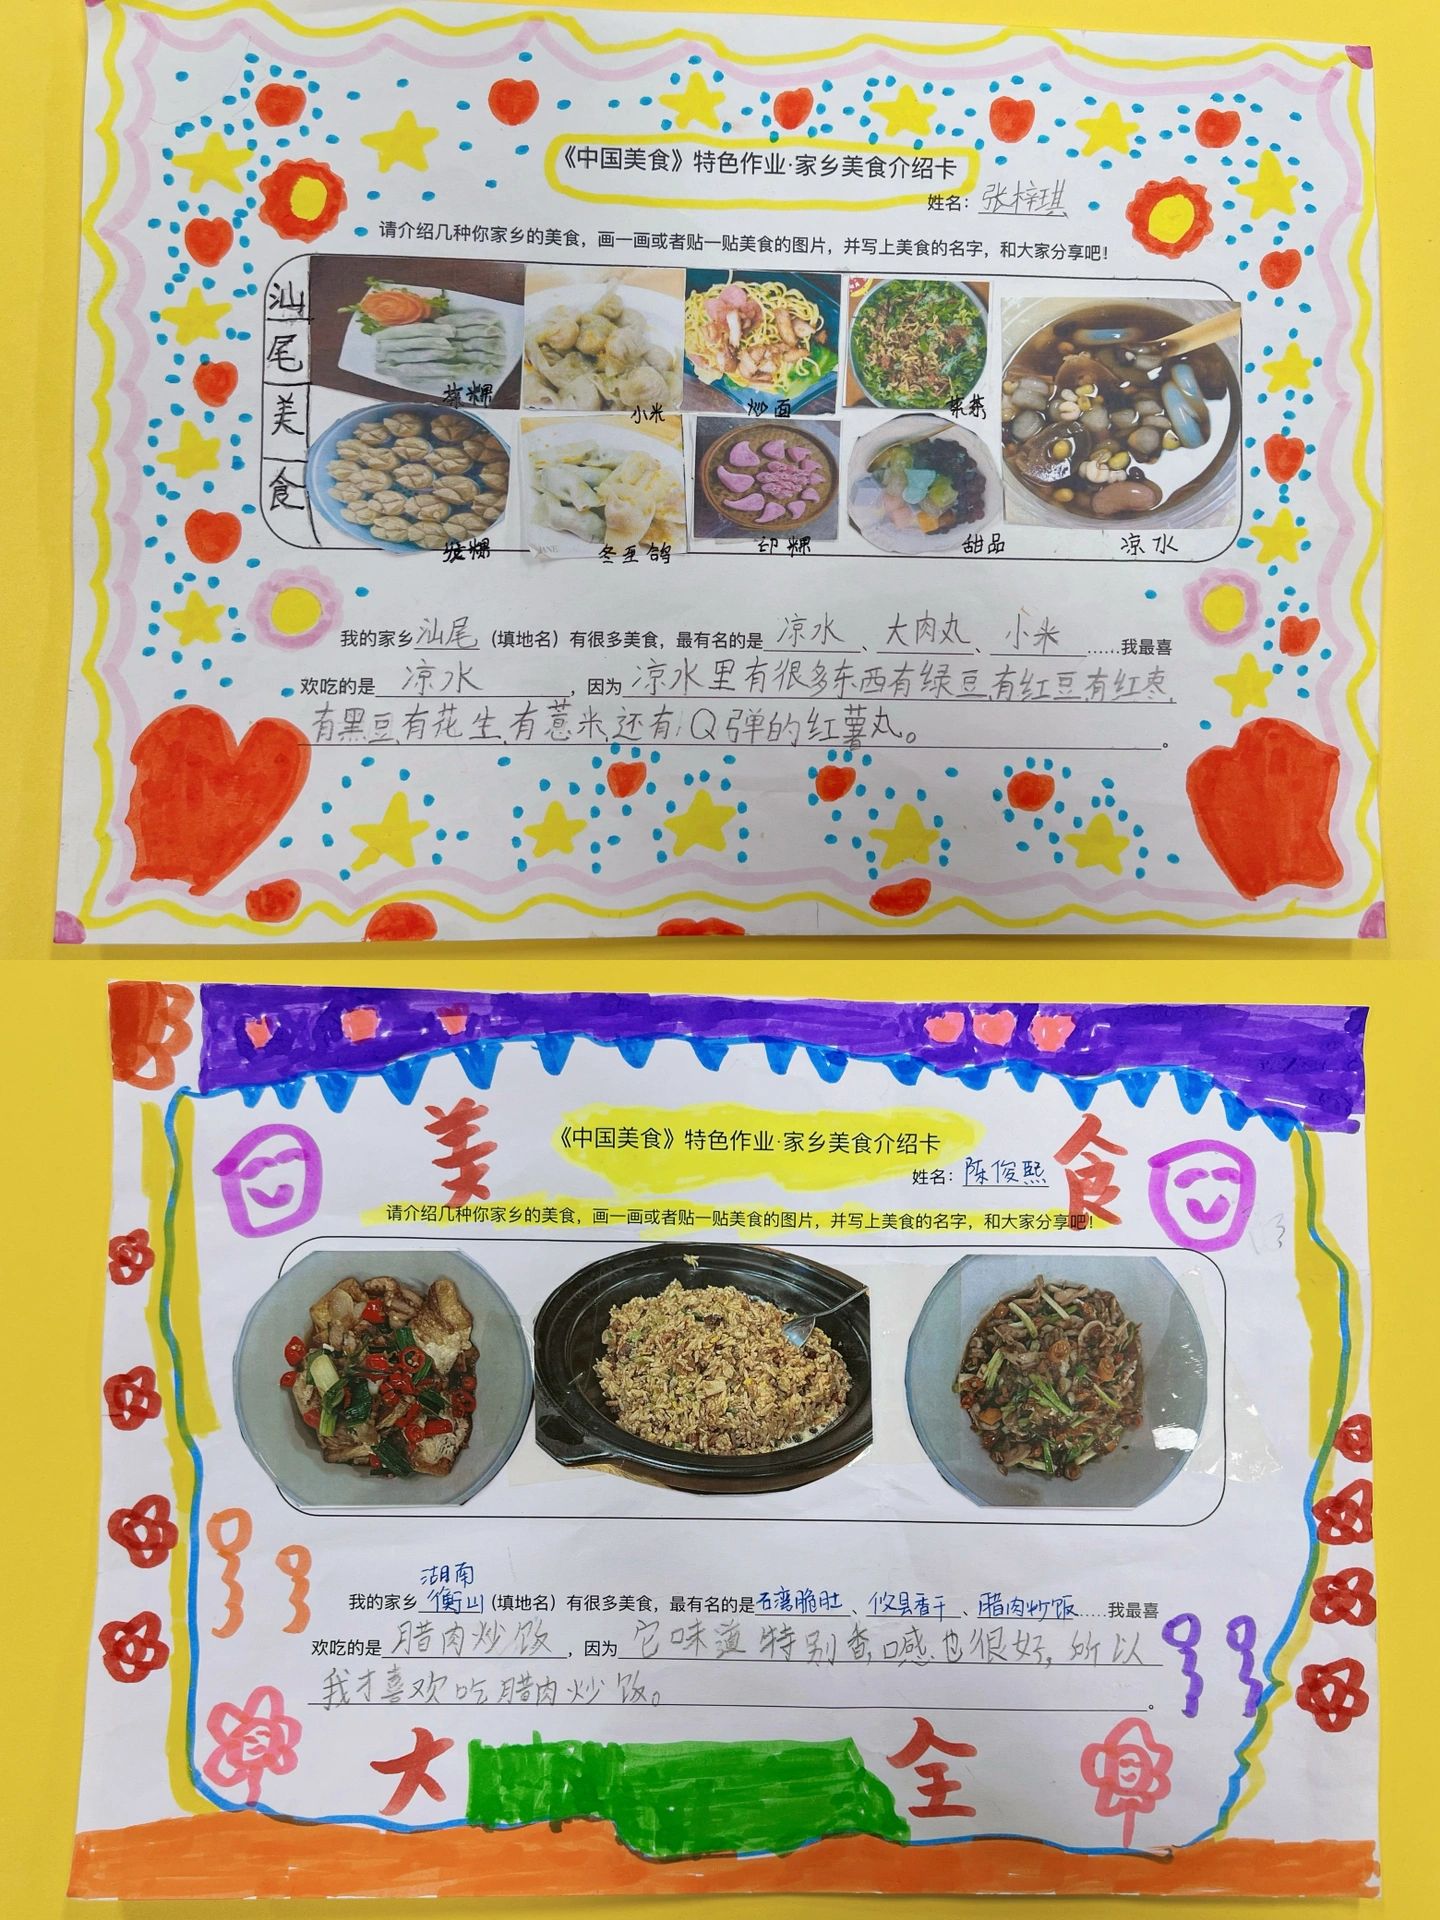 《中国美食》特色作业·家乡美食介绍卡
姓名：张梓琪
请介绍几种你家乡的美食，画一画或者贴一贴美食的图片，并写上美食的名字，和大家分享吧！
汕尾美食
菜粿
小米
炒面
菜茶
发粿
冬至鸽
印粿
甜品
凉水
我的家乡汕尾（填地名）有很多美食，最有名的是凉水、大肉丸、小米……我最喜
欢吃的是凉水，因为凉水里有很多东西有绿豆,有红豆,有红枣,
有黑豆,有花生,有薏米,还有Q弹的红薯丸。。
美食
《中国美食》特色作业·家乡美食介绍卡
姓名：陈俊熙
请介绍几种你家乡的美食，画一画或者贴一贴美食的图片，并写上美食的名字，和大家分享吧！
湖南
我的家乡衡山（填地名）有很多美食，最有名的是石湾脆肚、攸县香干、腊肉炒饭……我最喜
欢吃的是腊肉炒饭，因为它味道特别香,口感也很好,所以
我才喜欢吃腊肉炒饭。。
大全